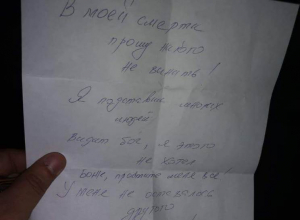 В моей смерти
прошу никого
не винить!
Я подставил
людей,
Видит бог, я этого
не хотел
Боже, простите меня все!
У меня не оставалось
другого